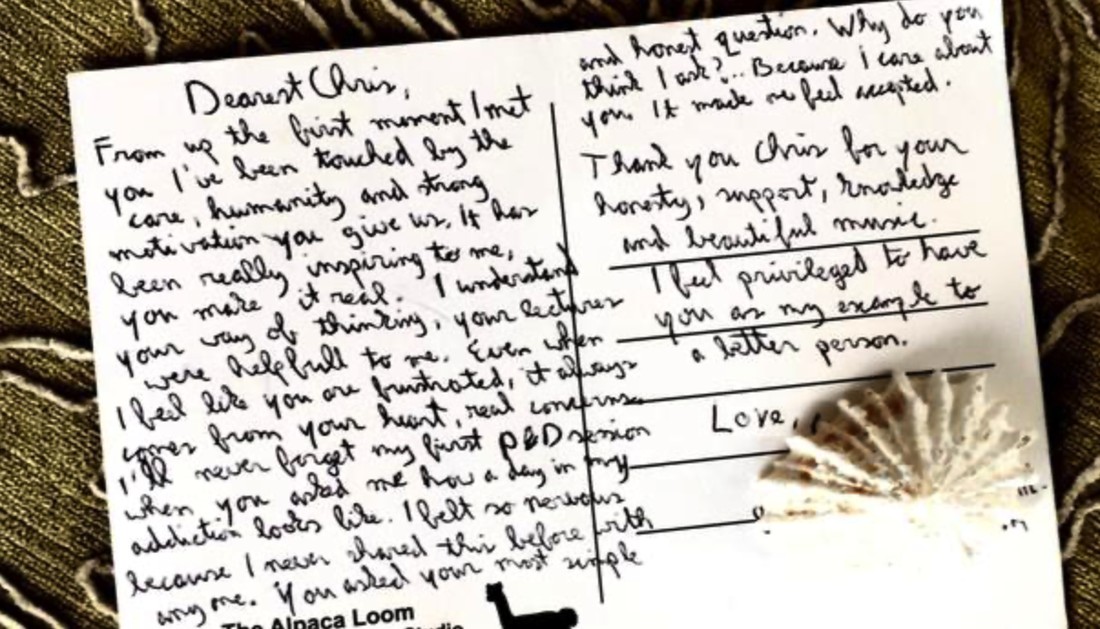 Dearest Chris,
From up the first moment I met
you I've been touched by the
care, humanity and strong
motivation you give us. It has
been really inspiring to me,
you make it real. I understand
your way of thinking, your lectures
were helpfull to me. Even when
I feel like you are frustrated, it always
comes from your heart, real concerns.
I'll never forget my first P&D session
when you asked me how a day in my
addiction looks like. I felt so nervous
because I never shared this before with
anyone. You asked your most simple
and honest question. Why do you
think I ask?... Because I care about
you. It made me feel accepted.
Thank you Chris for your
honesty, support, knowledge
and beautiful music.
I feel privileged to have
you as my example to
a better person.
Love,
The Alpaca Loom